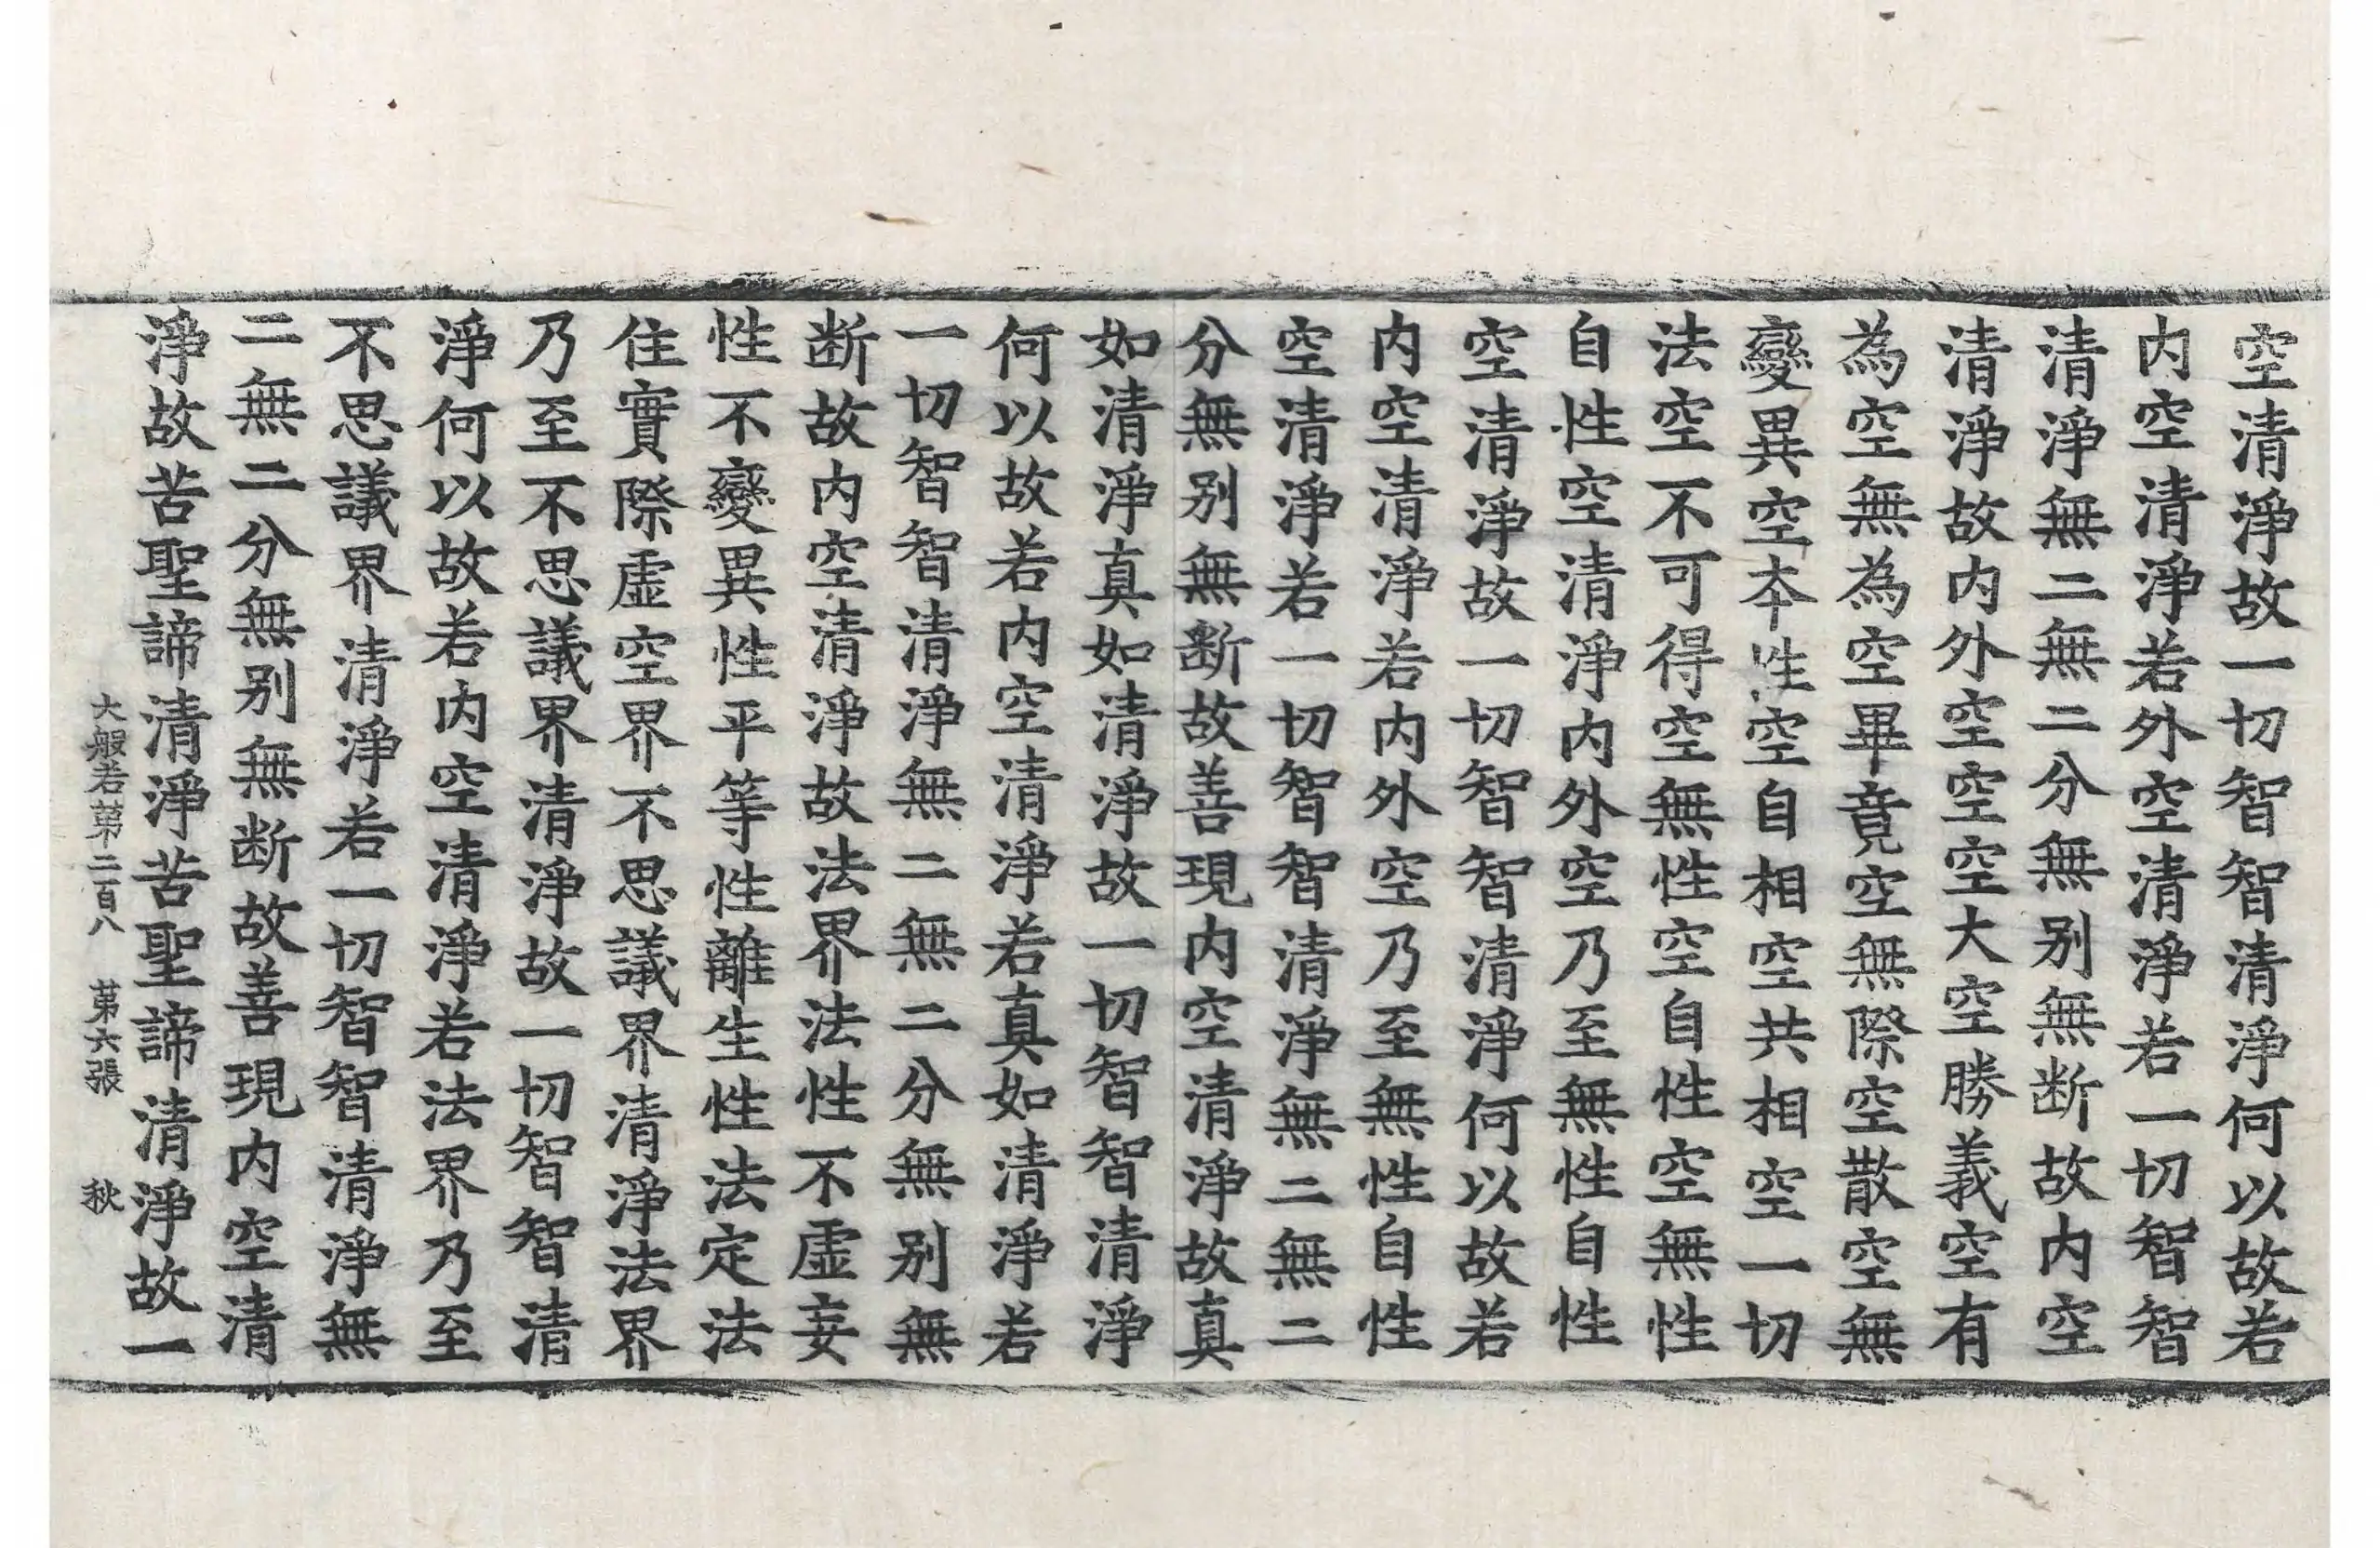 空清淨故一切智智清淨何以故若
内空清淨若外空清淨若一切智智
清淨無二無二分無别無断故内空
清淨故内外空空空大空勝義空有
為空無為空畢竟空無際空散空無
變異空本性空自相空共相空一切
法空不可得空無性空自性空無性
自性空清淨内外空乃至無性自性
空清淨故一切智智清淨何以故若
内空清淨若内外空乃至無性自性
空清淨若一切智智清淨無二無二
分無别無断故善現内空清淨故真
如清淨真如清淨故一切智智清淨
何以故若内空清淨若真如清淨若
一切智智清淨無二無二分無别無
断故内空清淨故法界法性不虚妄
性不變異性平等性離生性法定法
住實際虚空界不思議界清淨法界
乃至不思議界清淨故一切智智清
淨何以故若内空清淨若法界乃至
不思議界清淨若一切智智清淨無
二無二分無别無断故善現内空清
淨故苦聖諦清淨苦聖諦清淨故一
大般若第二百八 第六張 秋